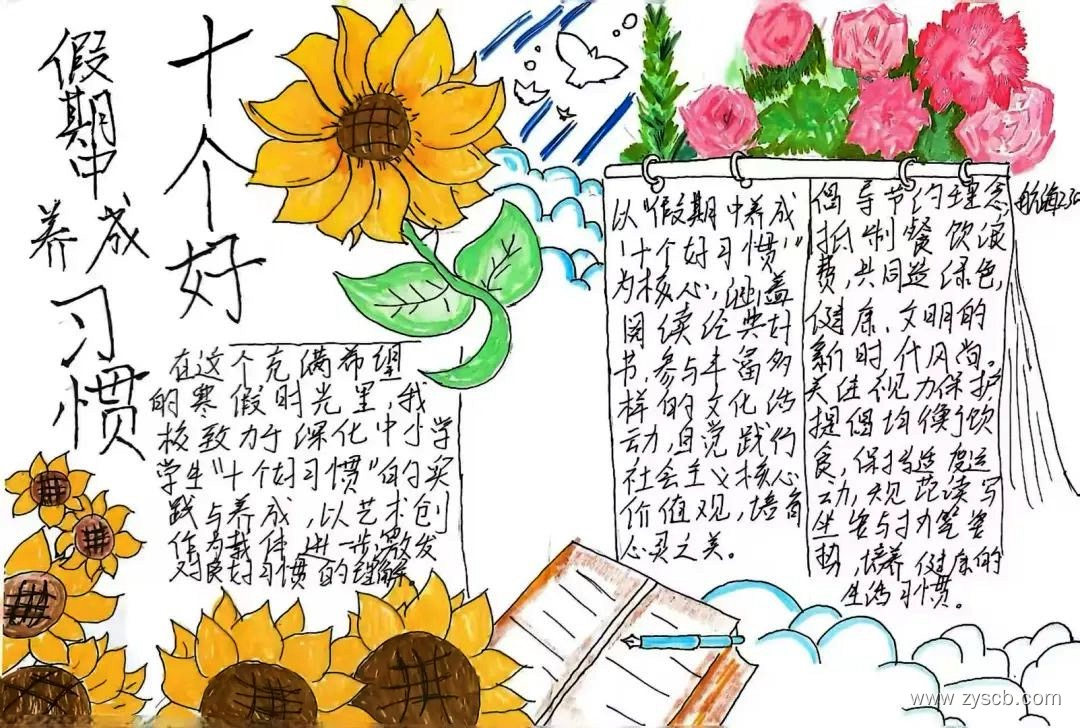 假期中
养成
习惯
十个好
在这个充满希望
的寒假时光里,我
校致力于深化中小学
学生"十个好习惯"的实
践与养成,以艺术创
作为载体进一步激发
对良好习惯的理解。
以"假期中养成
十个好习惯"
为核心,涵盖
阅读经典好
书,参与丰富多
样的文化活
动,自觉践行
社会主义核心
价值观,培育
心灵之美。
倡导节约理念,
抵制餐饮浪
费,共同造绿色,
健康,文明的
新时代风尚。
关注视力保护,
提倡均衡饮
食,保持适度运
动,规范读写
坐姿与执笔姿
势,培养健康的
生活习惯。
www.zyscb.com